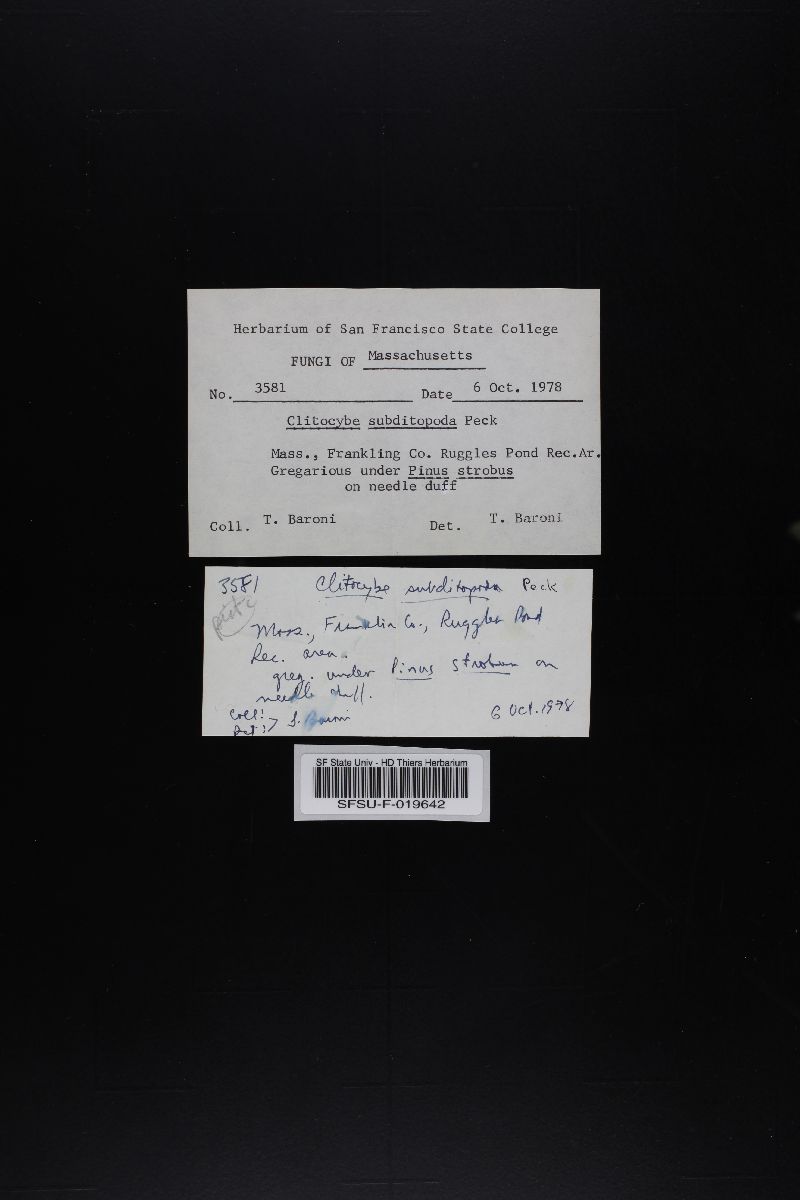 Herbarium of San Francisco State College
FUNGI OF Massachusetts
No. 3581 Date 6 Oct. 1978
Clitocybe subditopoda Peck
Mass., Frankling Co. Ruggles Pond Rec.Ar.
Gregarious under Pinus strobus
on needle duff
Coll. T. Baroni Det. T. Baroni
3581 Clitocybe subditopoda Peck
Mass., Franklin Co., Ruggles Pond
Rec. area.
greg. under Pinus strobus on
needle duff.
Coll: T. Baroni 6 Oct. 1978
Det:
SF State Univ - HD Thiers Herbarium
SFSU-F-019642